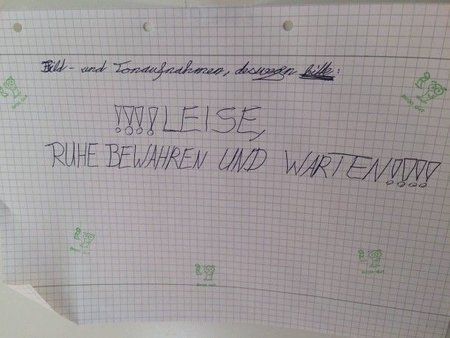 Bild- und Tonaufnahmen, deswegen bitte:
!!!! LEISE,
RUHE BEWAHREN UND WARTEN!!!!